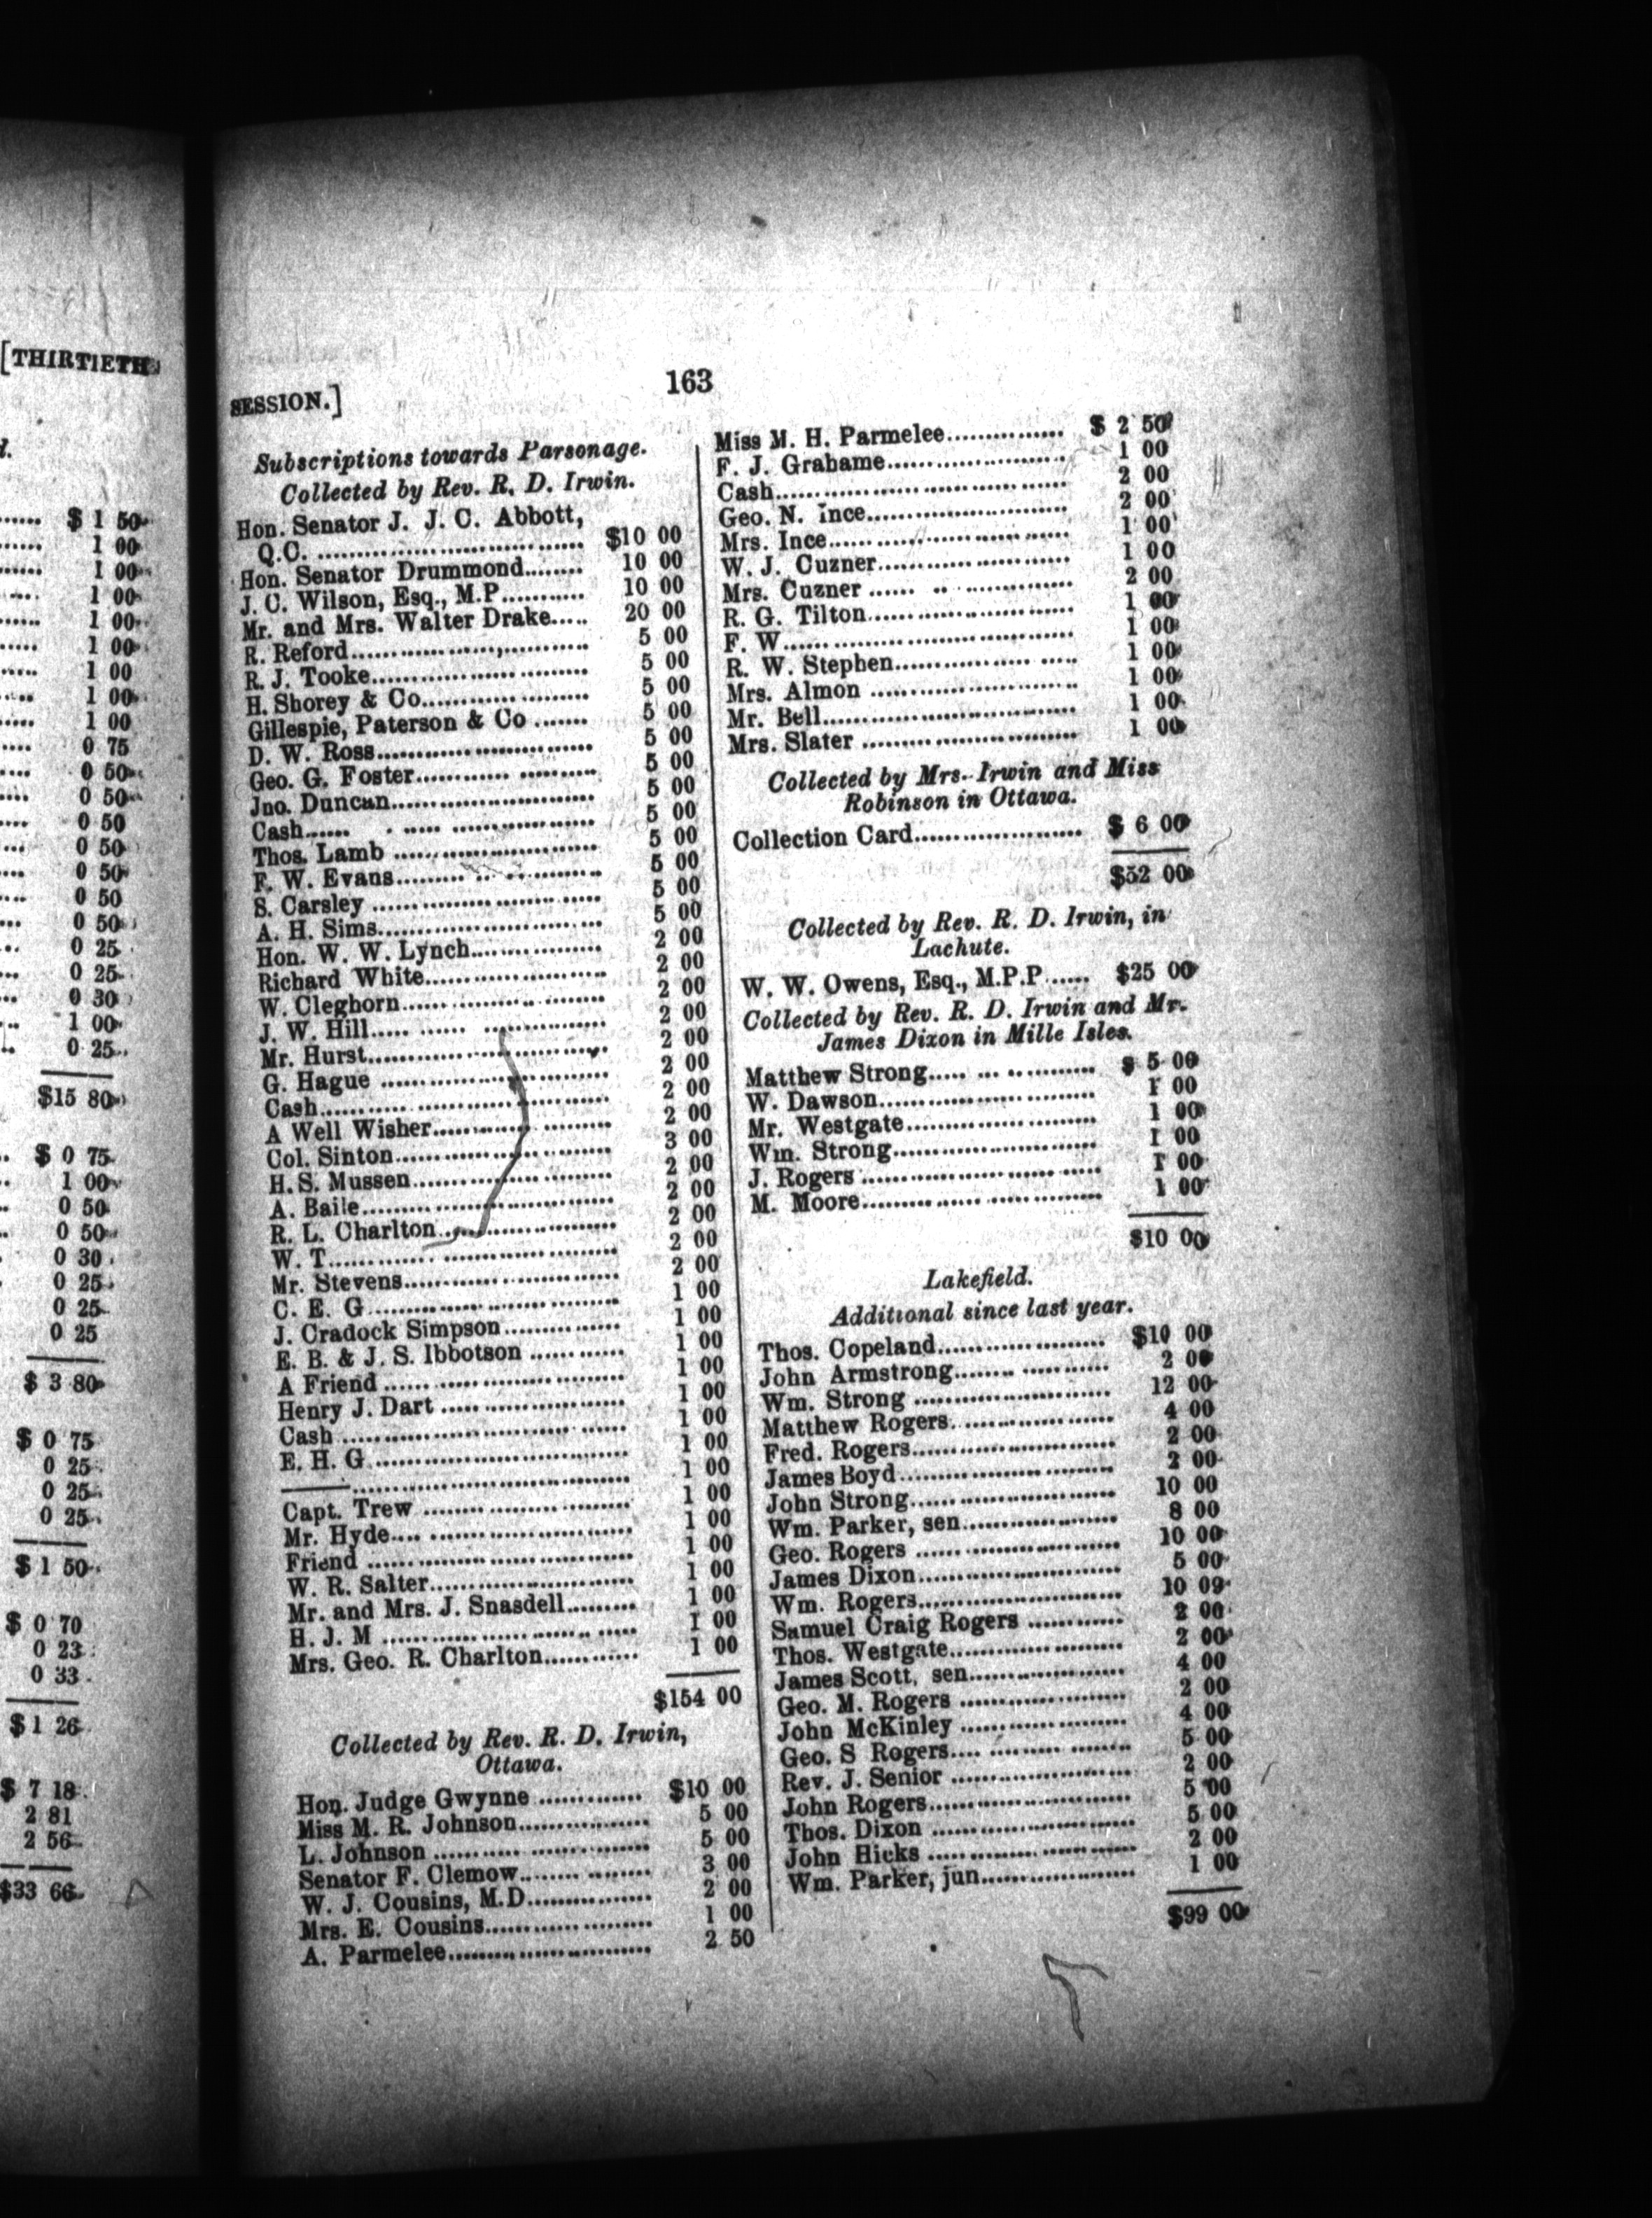 [THIRTIETH
d.
$ 1 50
1 00
1 00
1 00
1 00
1 00
1 00
1 00
1 00
0 75
0 50
0 50
0 50
0 50
0 50
0 50
0 50
0 25
0 25
0 30
1 00
0 25
$15 80
$ 0 75
1 00
0 50
0 50
0 30
0 25
0 25
0 25
$ 3 80
$ 0 75
0 25
0 25
0 25
$ 1 50
$ 0 70
0 23
0 33
$ 1 26
$ 7 18
2 81
2 56
$33 66
SESSION.]
163
Subscriptions towards Parsonage.
Collected by Rev. R. D. Irwin.
Hon. Senator J. J. C. Abbott,
Q.C. ........ $10 00
Hon. Senator Drummond........ 10 00
J. C. Wilson, Esq., M.P........ 10 00
Mr. and Mrs. Walter Drake..... 20 00
R. Reford........ 5 00
R. J. Tooke........ 5 00
H. Shorey & Co........ 5 00
Gillespie, Paterson & Co ....... 5 00
D. W. Ross........ 5 00
Geo. G. Foster........ 5 00
Jno. Duncan........ 5 00
Cash........ 5 00
Thos. Lamb ........ 5 00
F. W. Evans........ 5 00
S. Carsley ........ 5 00
A. H. Sims........ 5 00
Hon. W. W. Lynch........ 2 00
Richard White........ 2 00
W. Cleghorn........ 2 00
J. W. Hill........ 2 00
Mr. Hurst........ 2 00
G. Hague ........ 2 00
Cash........ 2 00
A Well Wisher........ 2 00
Col. Sinton........ 3 00
H. S. Mussen........ 2 00
A. Baile........ 2 00
R. L. Charlton........ 2 00
W. T........ 2 00
Mr. Stevens........ 2 00
C. E. G........ 1 00
J. Cradock Simpson........ 1 00
E. B. & J. S. Ibbotson ........ 1 00
A Friend ........ 1 00
Henry J. Dart ........ 1 00
Cash ........ 1 00
E. H. G ........ 1 00
——— ........ 1 00
Capt. Trew ........ 1 00
Mr. Hyde........ 1 00
Friend ........ 1 00
W. R. Salter........ 1 00
Mr. and Mrs. J. Snasdell........ 1 00
H. J. M ........ 1 00
Mrs. Geo. R. Charlton........ 1 00
$154 00
Collected by Rev. R. D. Irwin,
Ottawa.
Hon. Judge Gwynne ........ $10 00
Miss M. R. Johnson........ 5 00
L. Johnson ........ 5 00
Senator F. Clemow........ 3 00
W. J. Cousins, M.D........ 2 00
Mrs. E. Cousins........ 1 00
A. Parmelee........ 2 50
Miss M. H. Parmelee........ $ 2 50
F. J. Grahame........ 1 00
Cash........ 2 00
Geo. N. Ince........ 2 00
Mrs. Ince........ 1 00
W. J. Cuzner........ 1 00
Mrs. Cuzner ........ 2 00
R. G. Tilton........ 1 00
F. W........ 1 00
R. W. Stephen........ 1 00
Mrs. Almon ........ 1 00
Mr. Bell........ 1 00
Mrs. Slater ........ 1 00
Collected by Mrs. Irwin and Miss
Robinson in Ottawa.
Collection Card........ $ 6 00
$52 00
Collected by Rev. R. D. Irwin, in
Lachute.
W. W. Owens, Esq., M.P.P ...... $25 00
Collected by Rev. R. D. Irwin and Mr.
James Dixon in Mille Isles.
Matthew Strong........ $ 5 00
W. Dawson........ 1 00
Mr. Westgate........ 1 00
Wm. Strong........ 1 00
J. Rogers ........ 1 00
M. Moore........ 1 00
$10 00
Lakefield.
Additional since last year.
Thos. Copeland........ $10 00
John Armstrong........ 2 00
Wm. Strong ........ 12 00
Matthew Rogers........ 4 00
Fred. Rogers........ 2 00
James Boyd........ 2 00
John Strong........ 10 00
Wm. Parker, sen........ 8 00
Geo. Rogers ........ 10 00
James Dixon........ 5 00
Wm. Rogers........ 10 09
Samuel Craig Rogers ........ 2 00
Thos. Westgate........ 2 00
James Scott, sen........ 4 00
Geo. M. Rogers ........ 2 00
John McKinley ........ 4 00
Geo. S Rogers........ 5 00
Rev. J. Senior ........ 2 00
John Rogers........ 5 00
Thos. Dixon ........ 5 00
John Hicks ........ 2 00
Wm. Parker, jun........ 1 00
$99 00